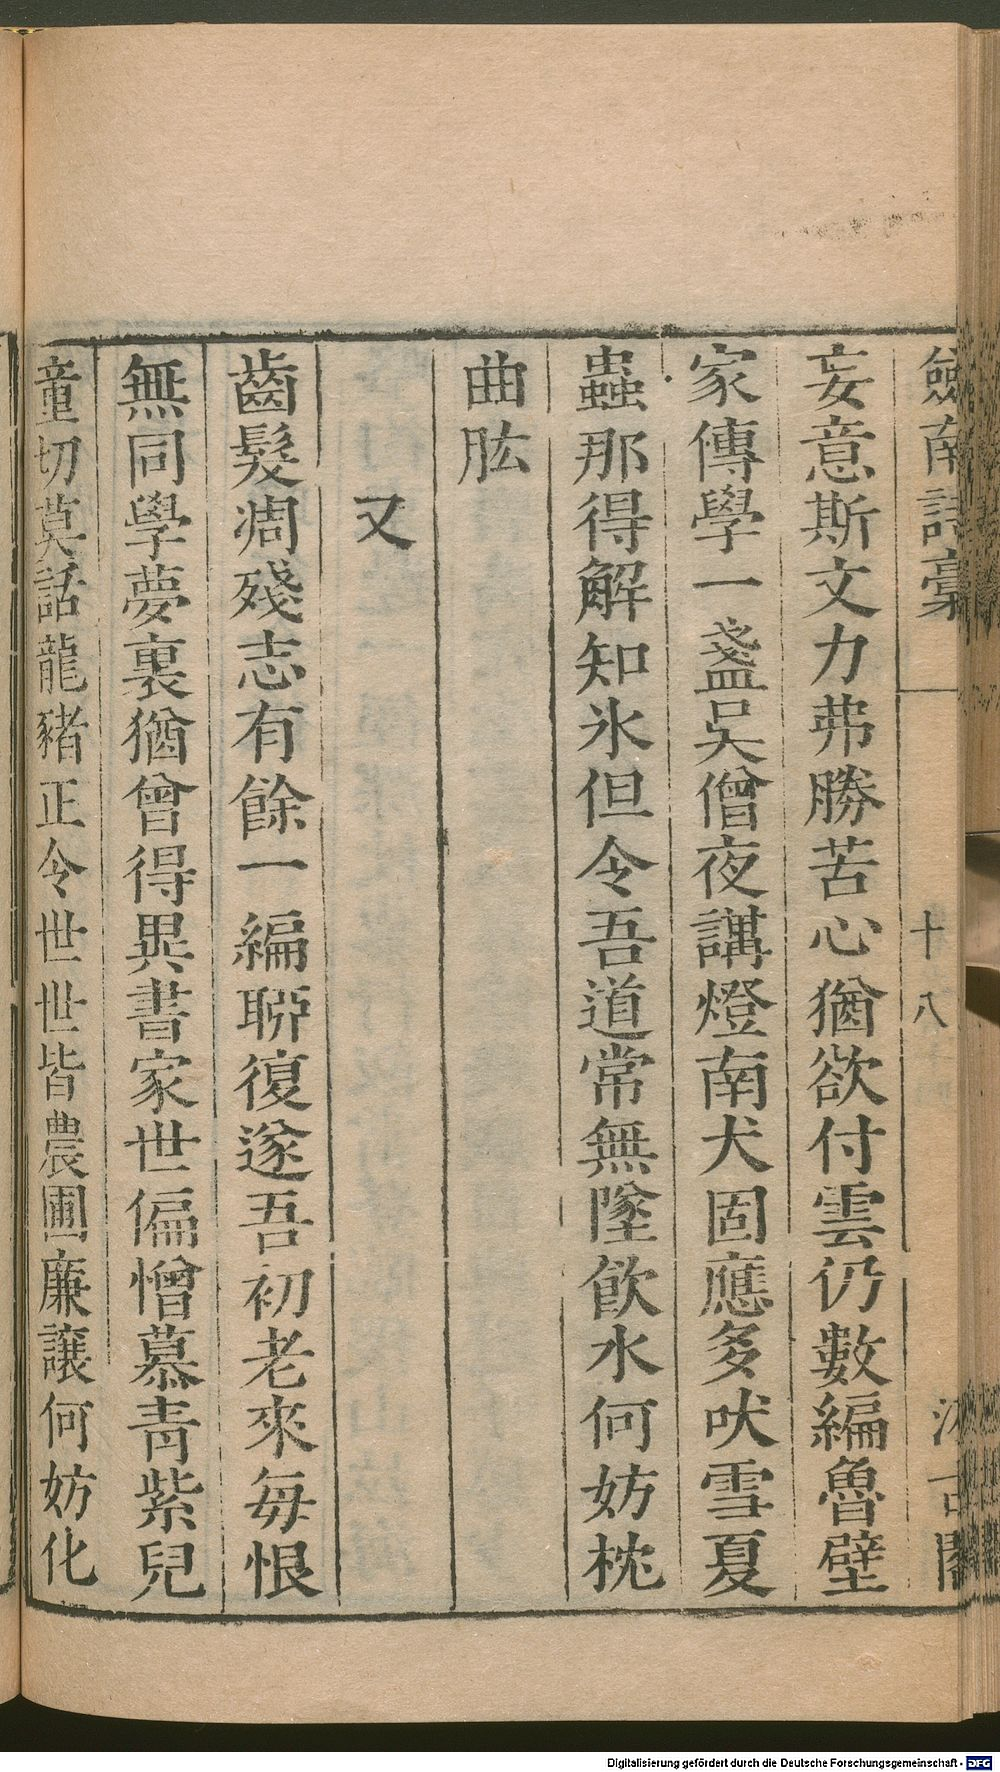 劍南詩稾
十八
汲古閣
妄意斯文力弗勝苦心猶欲付雲仍數編魯壁
家傳學一盞吳僧夜講燈南犬固應多吠雪夏
蟲那得解知氷但令吾道常無墜飮水何妨枕
曲肱
又
齒髮凋殘志有餘一編聊復遂吾初老來每恨
無同學夢裏猶曾得異書家世偏憎慕靑紫兒
童切莫話龍豬正令世世皆農圃廉讓何妨化
Digitalisierung gefördert durch die Deutsche Forschungsgemeinschaft - DFG